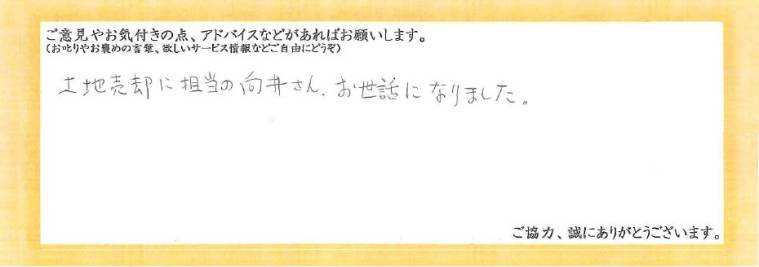 ご意見やお気付きの点、アドバイスなどがあればお願いします。
(お叱りやお褒めの言葉、欲しいサービス情報などご自由にどうぞ)
土地売却に担当の向井さん、お世話になりました。
ご協力、誠にありがとうございます。